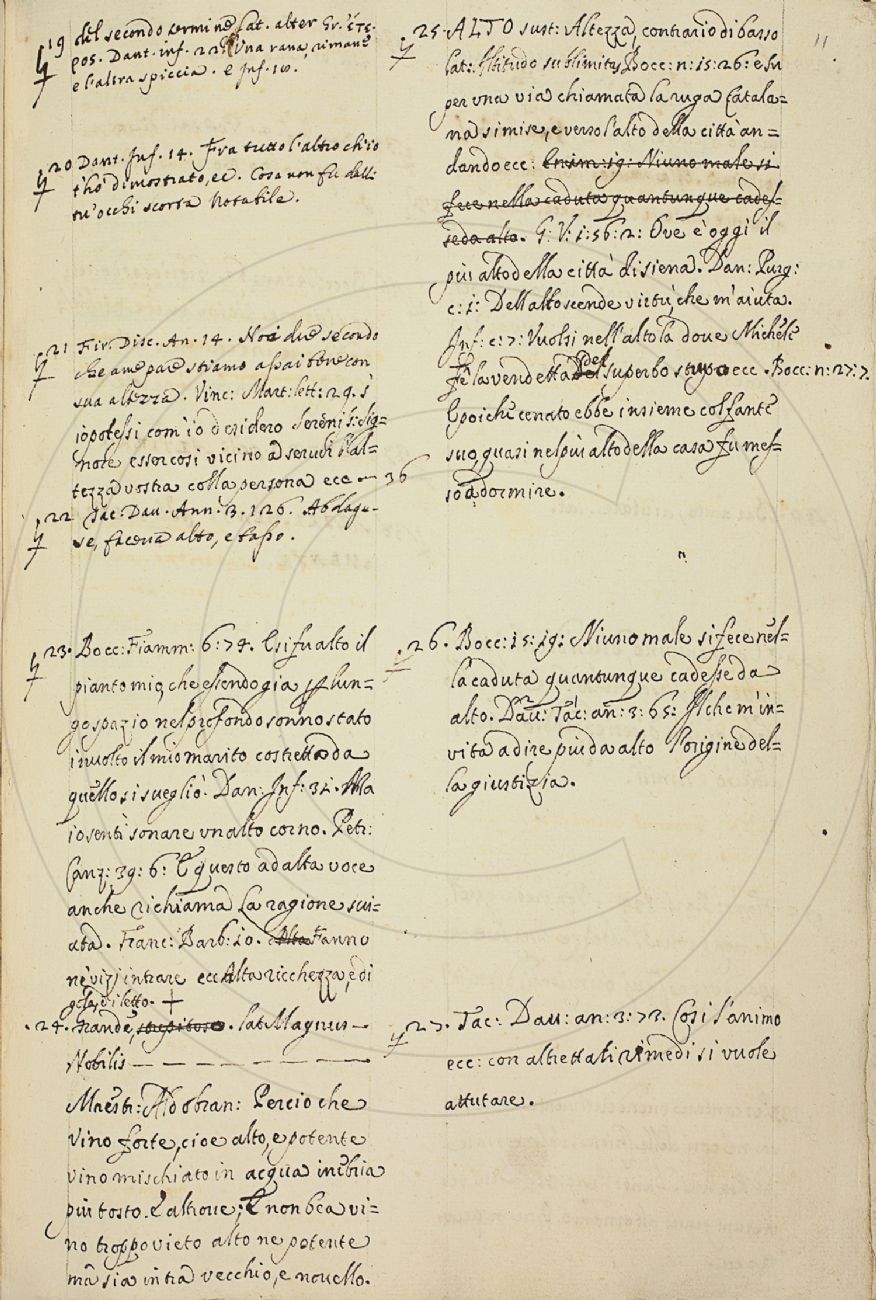 19 del secondo termine Lat. alter Gr. ἕτε-
ρος. Dant. inf. 22. Una rana rimane
e l'altra spiccia. e Inf. 10.
20 Dant. Inf. 14. Fra tutto l'altro ch'io
t'ho dimostrato, ec. Cosa non fu dalli
tu' occhi scorta Notabile.
21 Fir. Disc. An. 14. Noi due secondo
che a me pare stiamo assai bene con
sua altezza. Vinc: Mart: lett: 29. s'
io potessi com'io desidero Serenis: Sig=
nore esser così vicino a servir l'al=
tezza vostra colla persona ecc — 36
22 Tac: Dav. Ann: 3. 126. Ab
se, faceva alto, e basso.
23. Bocc: Fiamm: 6: 74. E si fu alto il
pianto mio, che essendo gia per lun=
go spazio nel profondo sonno stato
involto il mio marito costretto da
quello si svegliò. Dan: Inf: 31. Ma
io sentì sonare un alto corno. Petr:
Canz: 39: 6: E questo ad alta voce
anche richiama La ragione svi=
ata. Franc: Barb: 10. Alta Fanno
ne' vizj intrare ecc Alta ricchezza, e di
gola, diletto. +
24. Grande, lat: Magnus —
Nobilis — — — — — —
Maestr: Aldobran: Percio che
vino forte, cioe alto, e potente
vino mischiato in acqua inebria
più tosto. E altrove; E non bea vi=
no troppo vieto alto ne potente
ma sia intra vecchio, e novello.
11
25. ALTO sust: Altezza, contrario di basso
lat: Altitudo sublimitas, Bocc: n: 15: 26: e su
per una via chiamata la ruga Catala=
na si mise, e verso l'alto della città an=
dando ecc: Niuno male si
fece nella caduta quantunque cades=
se da alto. G: V: 1: 56: 2: Ove è oggi il
più alto della città di siena. Dan: Purg:
c: 1: Dell'alto scende virtù, che m'aiuta.
Inf: c: 7: Vuolsi nell'alto la dove Michele
Fe la vendetta del superbo strupo ecc. Bocc: n: 27: 7.
E poiche cenato ebbe insieme col fante
suo, quasi nel più alto della casa fu mes=
so a dormire.
26. Bocc: 15: 19: Niuno male si fece nel=
la caduta quantunque cadesse da
alto. Dav: Tac: an: 3: 65: Il che m'in=
vita a dire più da alto l'origine del=
la giustizia.
27. Tac: Dav: an: 3: 73. Così l'animo
ecc: con altrettali rimedi si vuole
attutare.